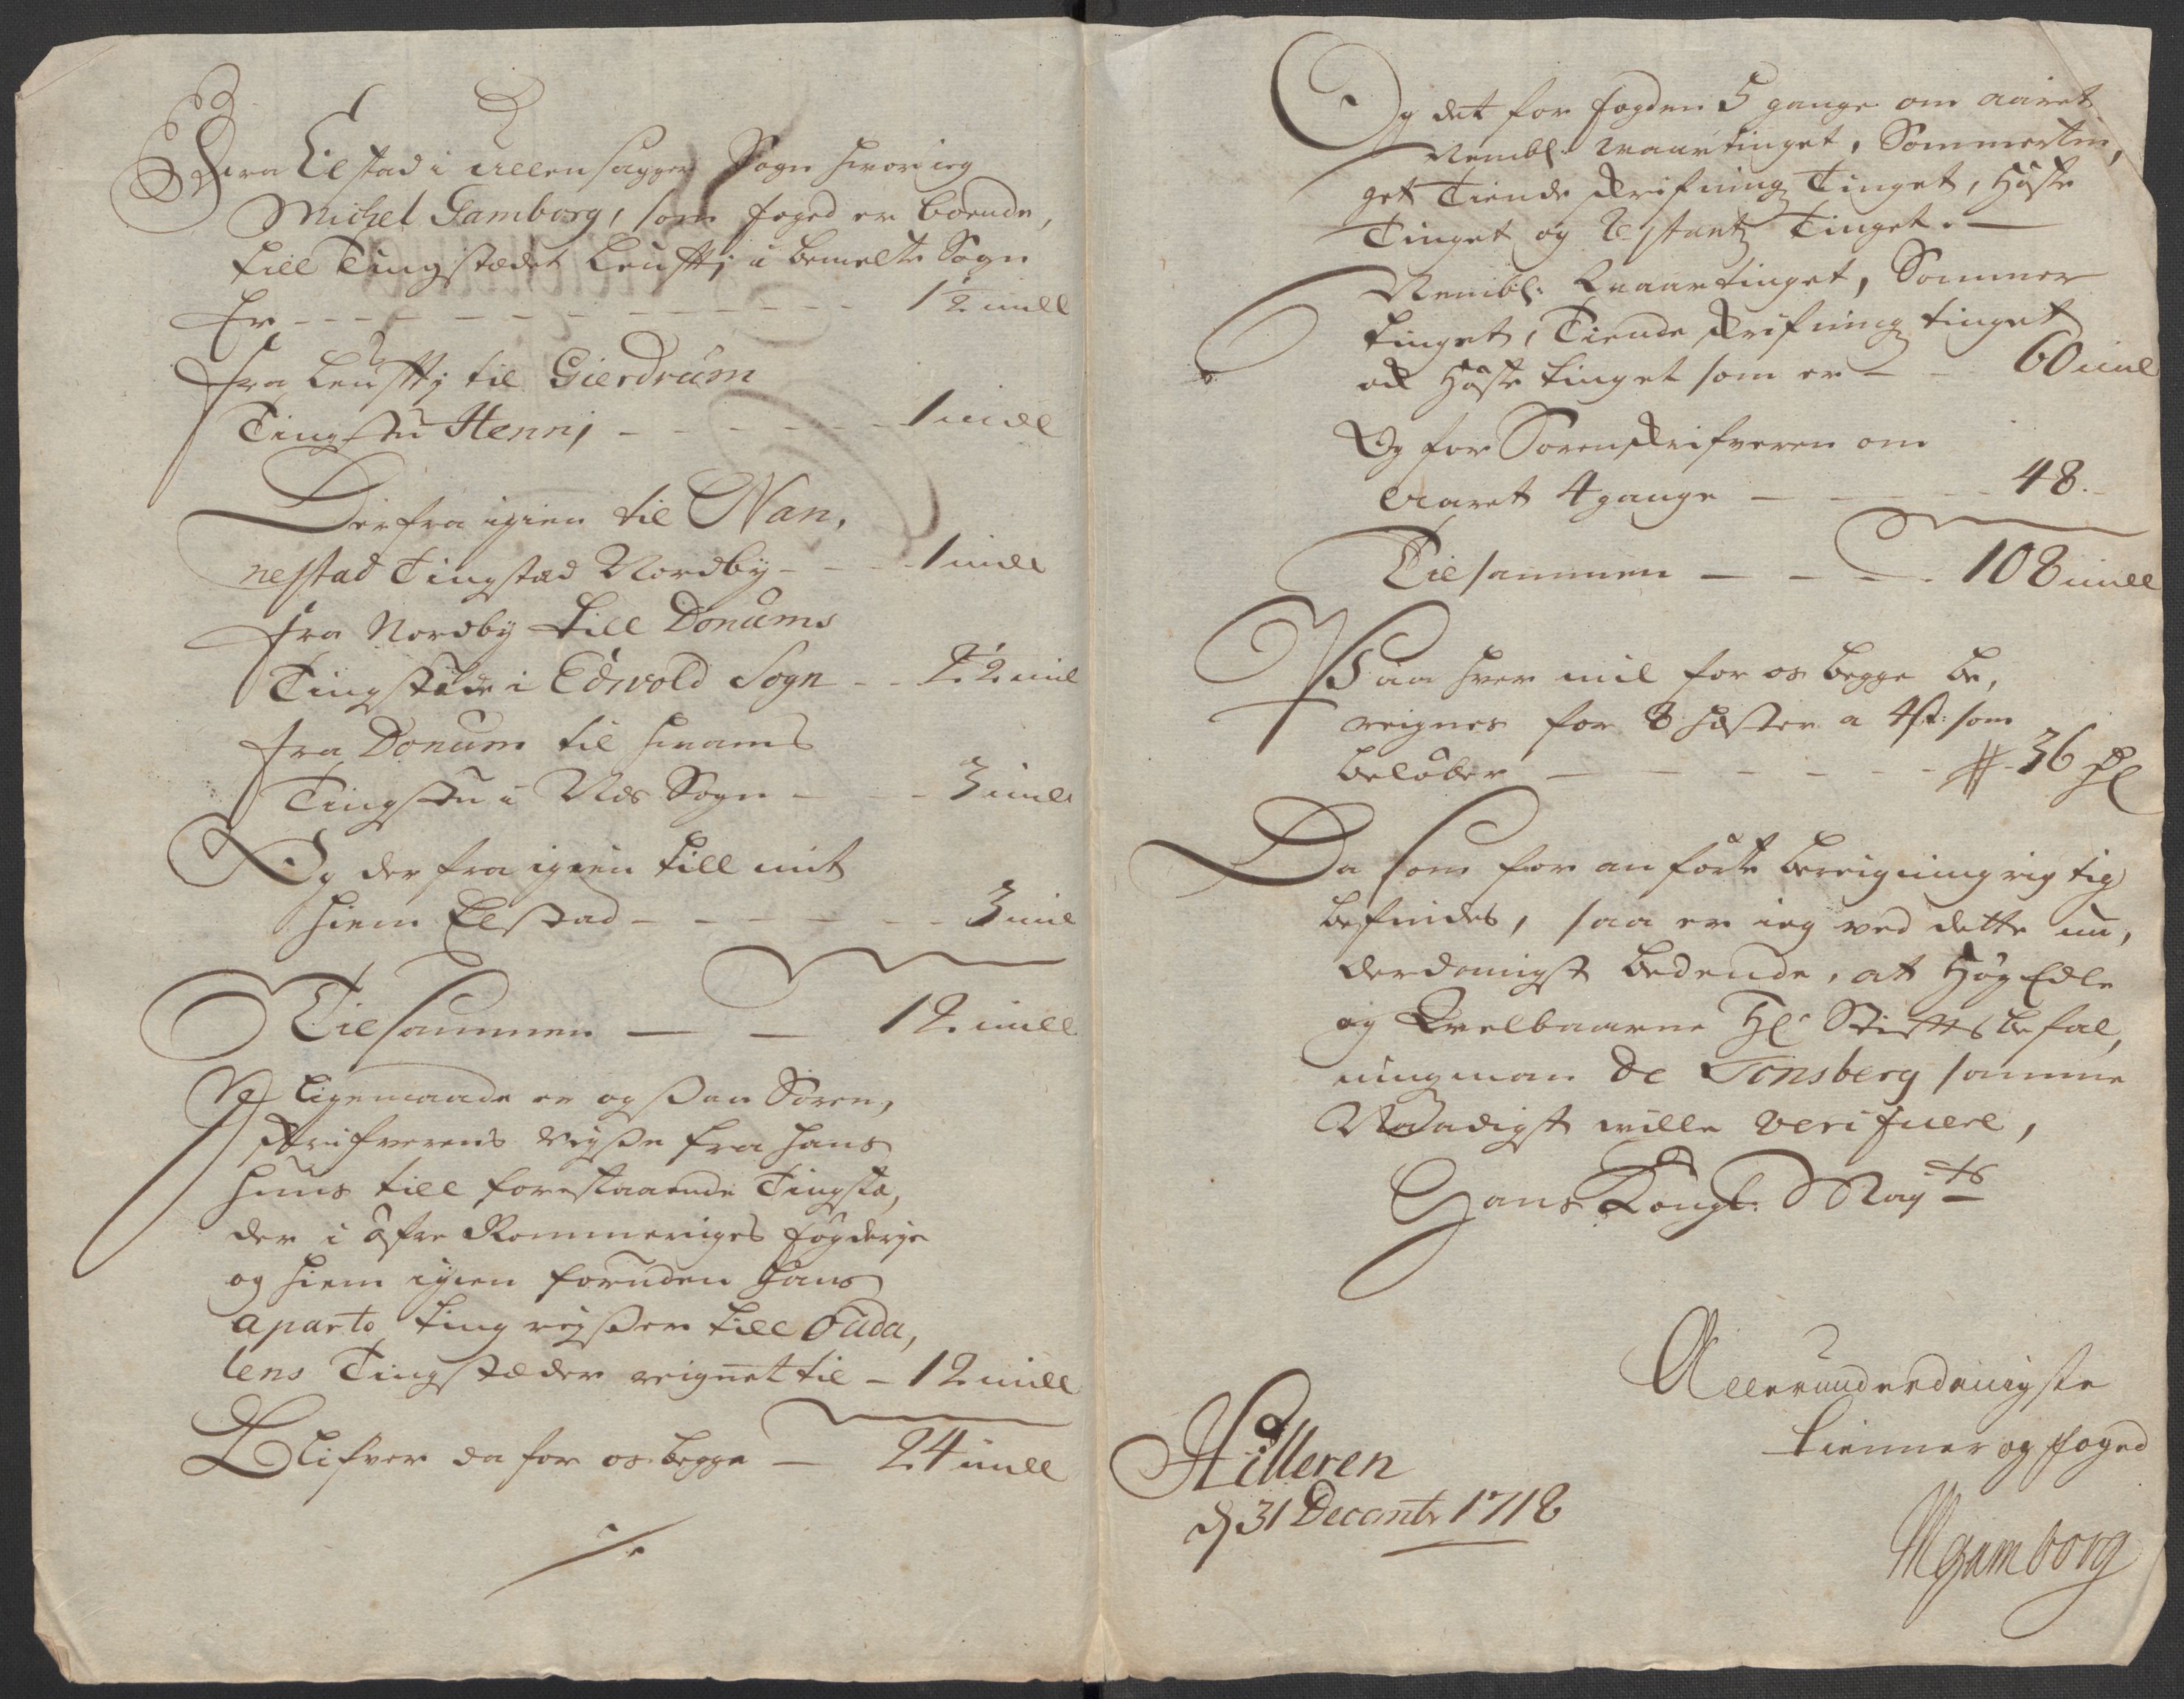 Fra Elstad i Ullensagger Sogn hvor ieg
Michel Gamborg, som foged er boende,
till Tingstædet Leufftj i bemelte Sogn
Er - - - - - - - - - - - - 1½ miill
Fra Leufftj til Gierdrum
Tingstu Hennj - - - - - - 1 miil
Derfra igien til Nan,
nestad Tingstad Nordby - - - 1 miil
Fra Nordby till Donums
Tingstæde i Edsvold Sogn - - 2½ miil
Fra Donum til Hvams
Tingstu i Næs Sogn - - - 3 miil
Og der fra igien till mit
hiem Elstad - - - - - - 3 miil
Tilsammen — — 12 miill
J ligemaade er og saa Soren,
skrifverens Reyse fra hans
huus till forestaaende Tingstæ,
der i öfre Rommeriges fogderje
og hiem igien foruden hans
aparte ting reyser till Ouda,
lens Tingstæder reignet til - 12 miill
Blifver da for os begge — 24 miill
Og det for fogden 5 gange om aaret
Nembl: Vaartinget, Sommertin,
get Tiende skrifning Tinget, Höste
Tinget og Restantz Tinget. —
Nembl: Vaartinget, Sommer
tinget, Tiende skrifning tinget
od Höste tinget som er — - 60 miil
Og for Sorenskrifveren om
Aaret 4 gange — - - - - 48. -
Tilsammen — - - - 108 miill
Paa hver mil for os begge be,
reignes for 8 Hæster a 4 st: som
belöber — - - - - - - 36
Da som for anförte bereigning rigtig
befindes, saa er ieg ved dette un,
derdanigst bedende, at Höy Edle
og Velbaarne Hr Stifftsbefal,
ningman De Tonsberg samme
Naadigst wille verifuere,
Hans Kongl: Mayts
Allerunderdanigste
tienner og foged
MGamborg
Hilleren
d 31 Decembr 1718